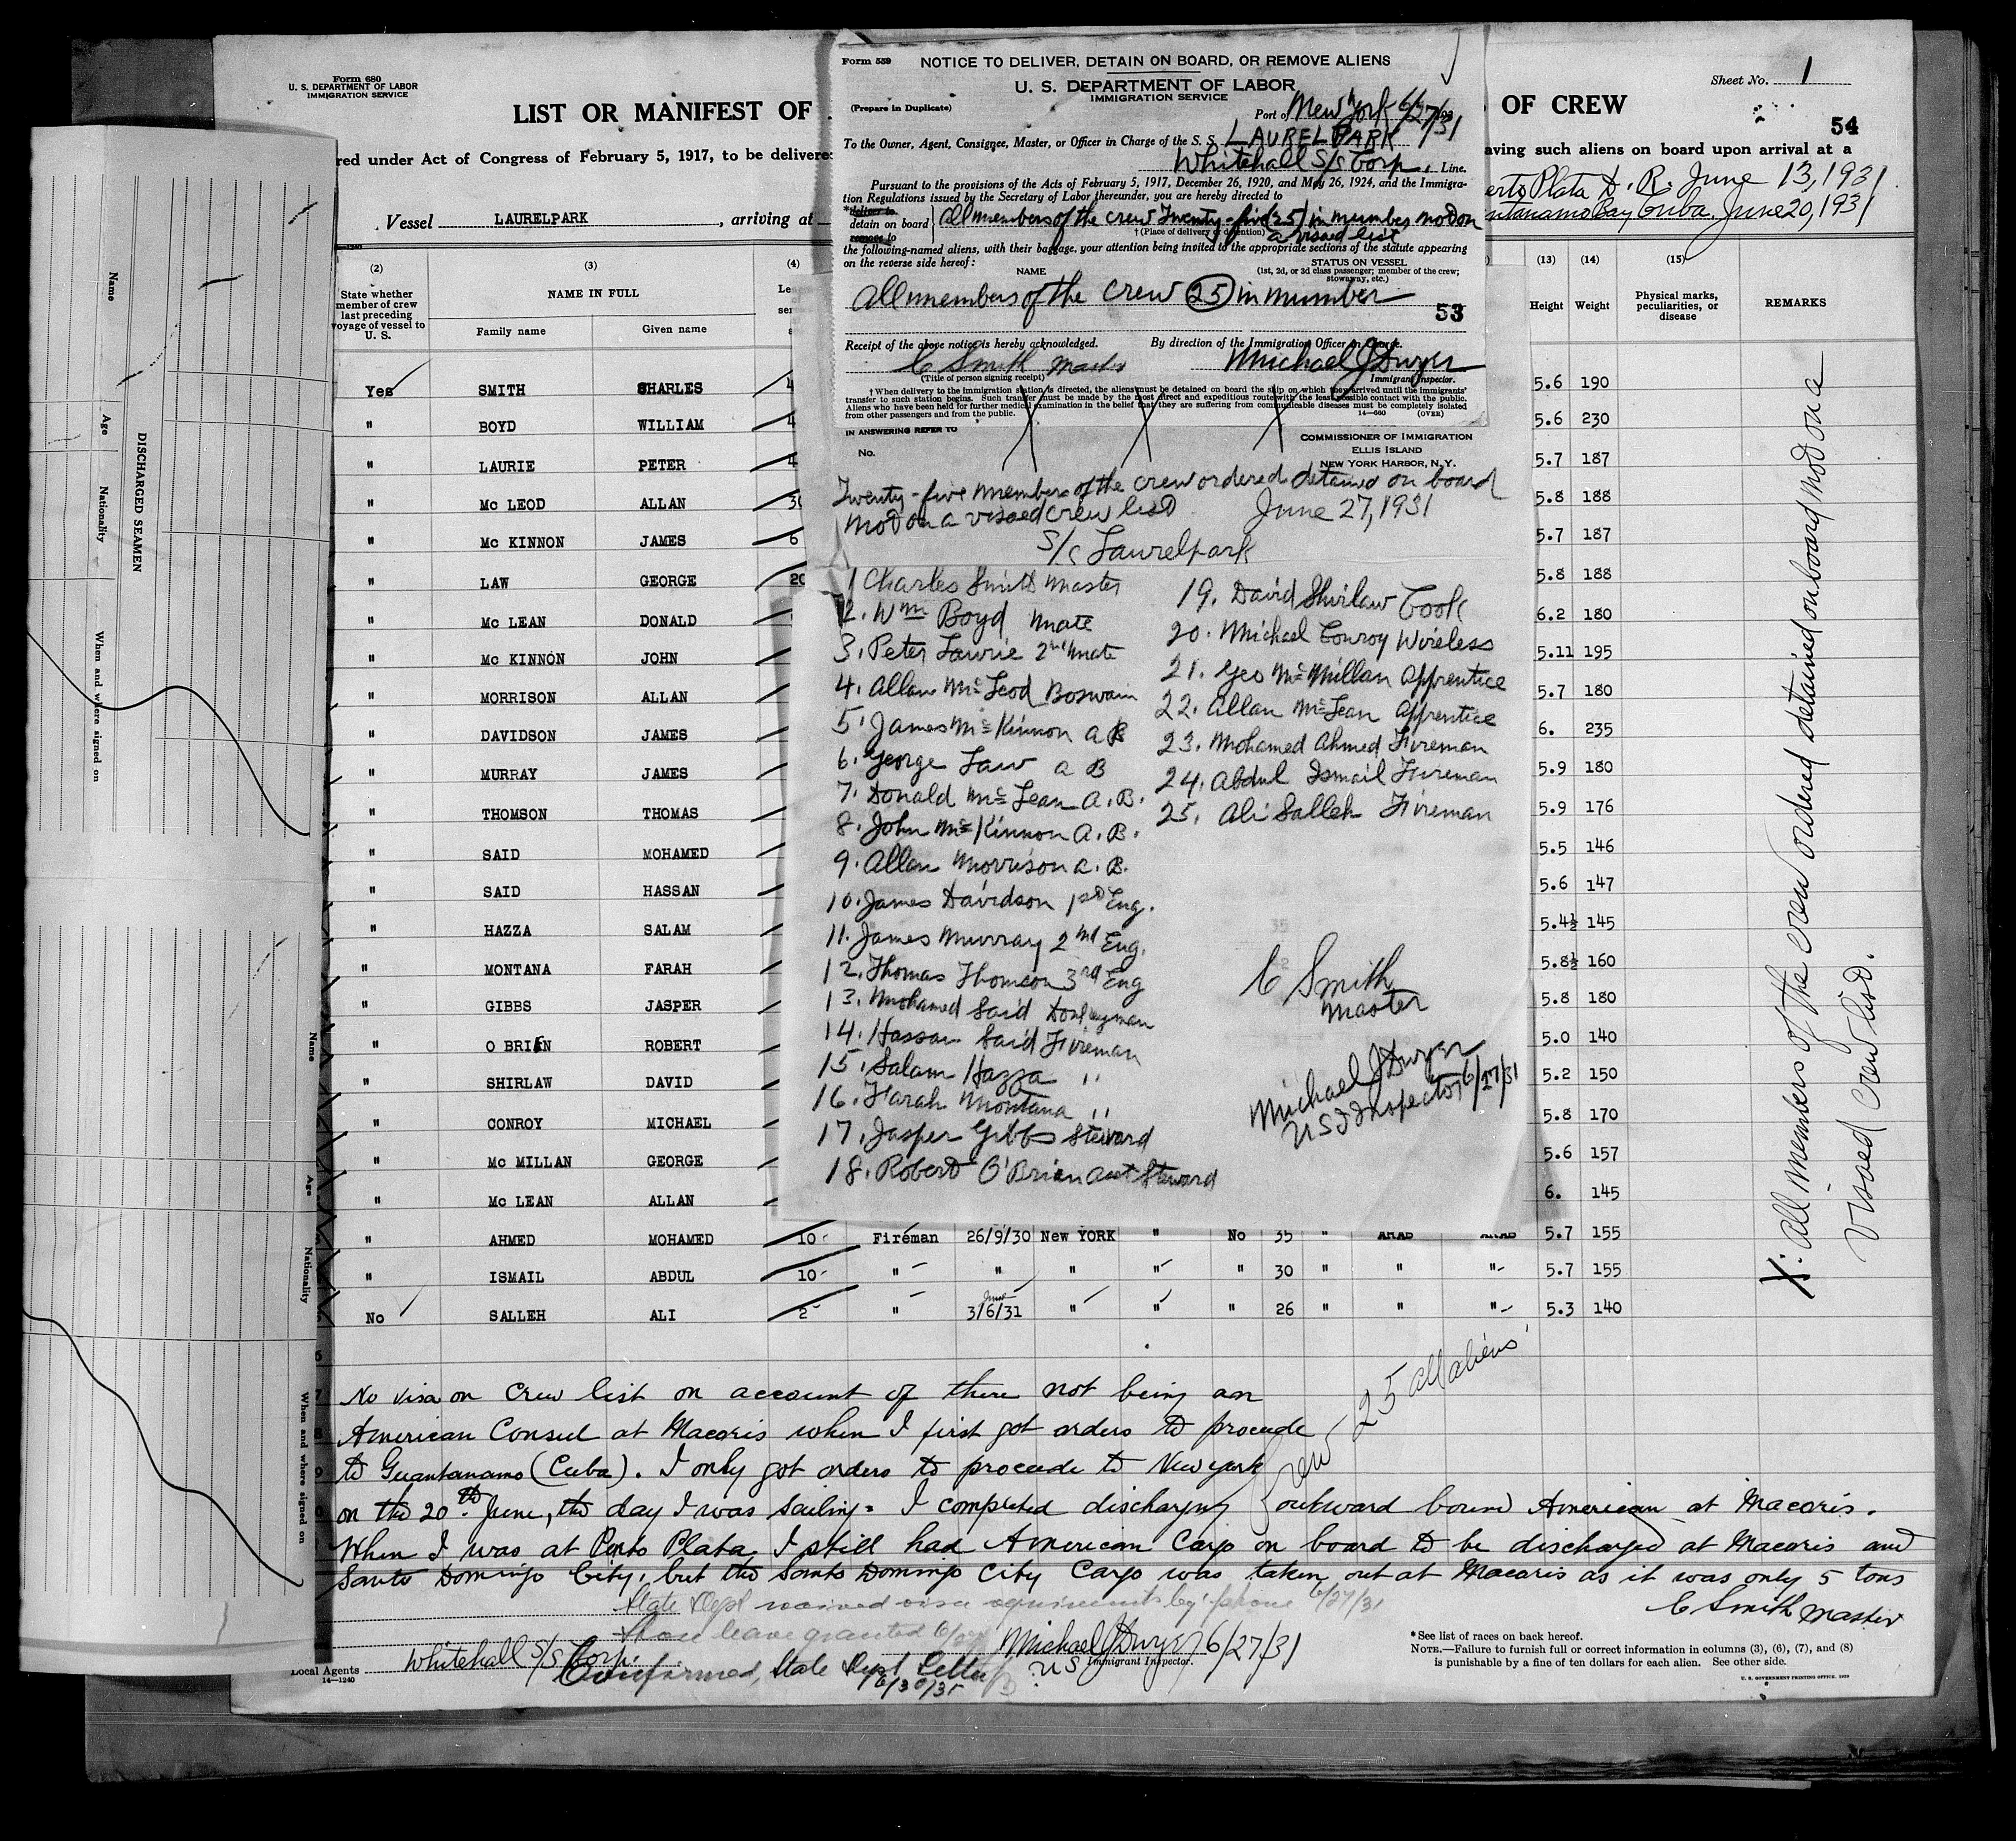 Form 680
U. S. DEPARTMENT OF LABOR
IMMIGRATION SERVICE
LIST OR MANIFEST OF
OF CREW
Sheet No. 1
54
red under Act of Congress of February 5, 1917, to be delivere
aving such aliens on board upon arrival at a
Vessel LAURELPARK, arriving at
erto Plata D. R. June 13, 1931
ntanamo Bay Cuba. June 20, 1931
Form 559
NOTICE TO DELIVER, DETAIN ON BOARD, OR REMOVE ALIENS
U. S. DEPARTMENT OF LABOR
IMMIGRATION SERVICE
(Prepare in Duplicate)
Port of New York 6/27/31
To the Owner, Agent, Consignee, Master, or Officer in Charge of the S. S. LAURELPARK
Whitehall S/S Corp. Line.
Pursuant to the provisions of the Acts of February 5, 1917, December 26, 1920, and May 26, 1924, and the Immigra-
tion Regulations issued by the Secretary of Labor thereunder, you are hereby directed to
*deliver to
detain on board
remove to
all members of the crew Twenty-five (25) in number not on
† (Place of delivery or detention)
a visaed list
the following-named aliens, with their baggage, your attention being invited to the appropriate sections of the statute appearing
on the reverse side hereof:
NAME
STATUS ON VESSEL
(1st, 2d, or 3d class passenger; member of the crew;
stowaway, etc.)
All members of the crew 25 in number
53
Receipt of the above notice is hereby acknowledged.
By direction of the Immigration Officer in Charge.
C Smith Master
Michael J Dwyer
(Title of person signing receipt)
Immigrant Inspector.
† When delivery to the immigration station is directed, the aliens must be detained on board the ship on which they arrived until the immigrants'
transfer to such station begins. Such transfer must be made by the most direct and expeditious route with the least possible contact with the public.
Aliens who have been held for further medical examination in the belief that they are suffering from communicable diseases must be completely isolated
from other passengers and from the public.
14—660
(OVER)
IN ANSWERING REFER TO
No.
COMMISSIONER OF IMMIGRATION
ELLIS ISLAND
NEW YORK HARBOR, N. Y.
Twenty-five members of the crew ordered detained on board
not on a visaed crew list
June 27, 1931
S/S Laurelpark
1 Charles Smith Master
2. Wm Boyd Mate
3. Peter Laurie 2nd Mate
4. Allan McLeod Boswain
5. James McKinnon A B
6. George Law A B
7. Donald McLean A. B.
8. John McKinnon A. B.
9. Allan Morrison A. B.
10. James Davidson 1st Eng.
11. James Murray 2nd Eng.
12. Thomas Thomson 3rd Eng
13. Mohamed Said Donkeyman
14. Hassan Said Fireman
15. Salam Hazza "
16. Farah Montana "
17. Jasper Gibbs Steward
18. Robert O'Brien asst Steward
19. David Shirlaw Cook
20. Michael Conroy Wireless
21. Geo McMillan Apprentice
22. Allan McLean Apprentice
23. Mohamed Ahmed Fireman
24. Abdul Ismail Fireman
25. Ali Salleh Fireman
C Smith
Master
Michael J Dwyer
US I Inspector 6/27/31
(2)
(3)
(4)
(13)
(14)
(15)
State whether
member of crew
last preceding
voyage of vessel to
U. S.
NAME IN FULL
Family name
Given name
Height
Weight
Physical marks,
peculiarities, or
disease
REMARKS
Yes SMITH CHARLES 5.6 190
" BOYD WILLIAM 5.6 230
" LAURIE PETER 5.7 187
" Mc LEOD ALLAN 5.8 188
" Mc KINNON JAMES 5.7 187
" LAW GEORGE 20 5.8 188
" Mc LEAN DONALD 6.2 180
" Mc KINNON JOHN 5.11 195
" MORRISON ALLAN 5.7 180
" DAVIDSON JAMES 6. 235
" MURRAY JAMES 5.9 180
" THOMSON THOMAS 5.9 176
" SAID MOHAMED 5.5 146
" SAID HASSAN 5.6 147
" HAZZA SALAM 5.4½ 145
" MONTANA FARAH 5.8½ 160
" GIBBS JASPER 5.8 180
" O BRIEN ROBERT 5.0 140
" SHIRLAW DAVID 5.2 150
" CONROY MICHAEL 5.8 170
" Mc MILLAN GEORGE 5.6 157
" Mc LEAN ALLAN 6. 145
" AHMED MOHAMED 10 Fireman 26/9/30 New YORK " No 35 " ARAB ARAB 5.7 155
" ISMAIL ABDUL 10 " " " " " 30 " " " 5.7 155
No SALLEH ALI 2 " 3/6/31 " " " 26 " " " 5.3 140
June
X. All members of the crew ordered detained on board not on a
visaed crew list.
Crew 25 all aliens
No visa on crew list on account of there not being an
American Consul at Macoris when I first got orders to procede
to Guantanamo (Cuba). I only got orders to procede to New York
on the 20th June, the day I was sailing. I completed discharging outward bound American at Macoris.
When I was at Porto Plata I still had American Cargo on board to be discharged at Macoris and
Santo Domingo City, but the Santo Domingo City Cargo was taken out at Macoris as it was only 5 tons
C Smith Master
State Dept waived visa requirements by phone 6/27/31
Shore leave granted
Michael J Dwyer 6/27/31
US Immigrant Inspector.
Local Agents Whitehall S/S Corp.
Confirmed, State Dept Letter
14—1240
*See list of races on back hereof.
NOTE.—Failure to furnish full or correct information in columns (3), (6), (7), and (8)
is punishable by a fine of ten dollars for each alien. See other side.
U. S. GOVERNMENT PRINTING OFFICE: 1929
DISCHARGED SEAMEN
Name
Age
Nationality
When and where signed on
Name
Age
Nationality
When and where signed on